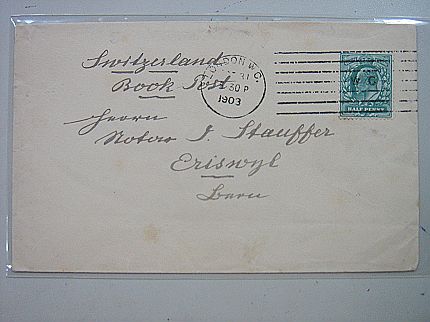 Switzerland
Book Post
LONDON W.C.
31
30 P
1903
HALF PENNY
Herrn
Notar J. Stauffer
Eriswyl
Bern